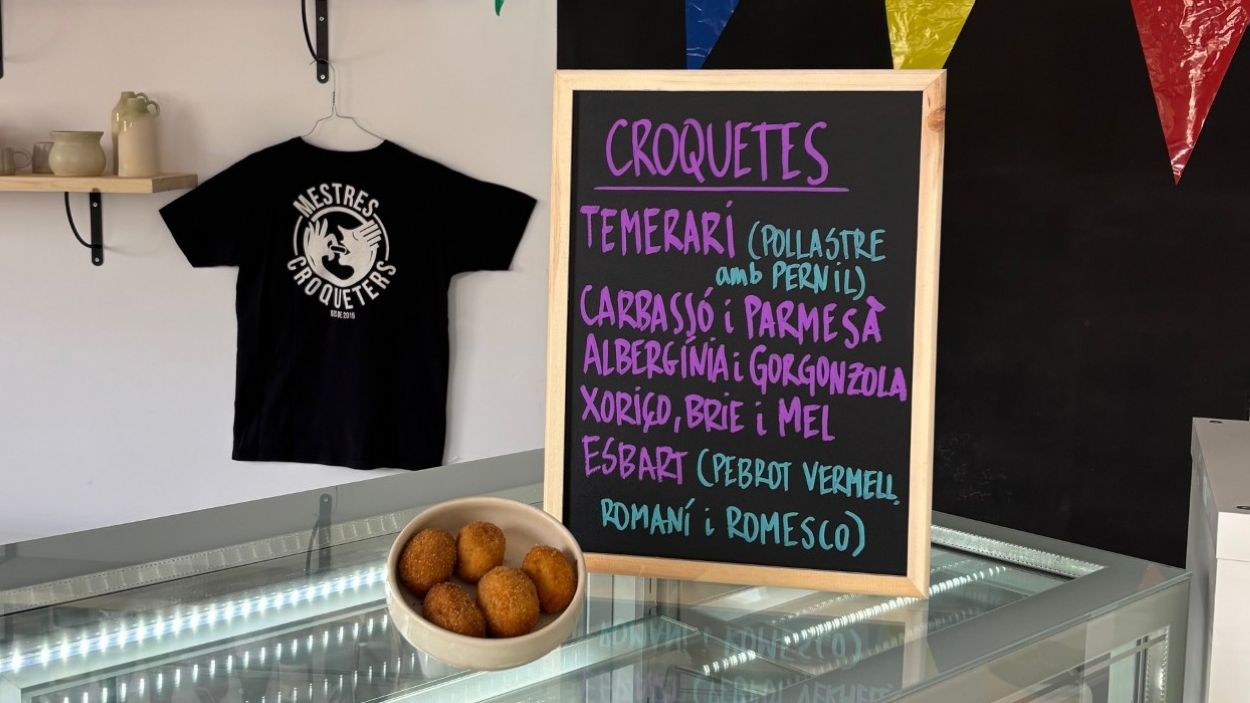 MESTRES
CROQUETERS
DES DE 2015
CROQUETES
TEMERARÍ (POLLASTRE
amb PERNIL)
CARBASSÓ i PARMESÀ
ALBERGÍNIA i GORGONZOLA
XORIÇO, BRIE i MEL
ESBART (PEBROT VERMELL,
ROMANÍ i ROMESCO)